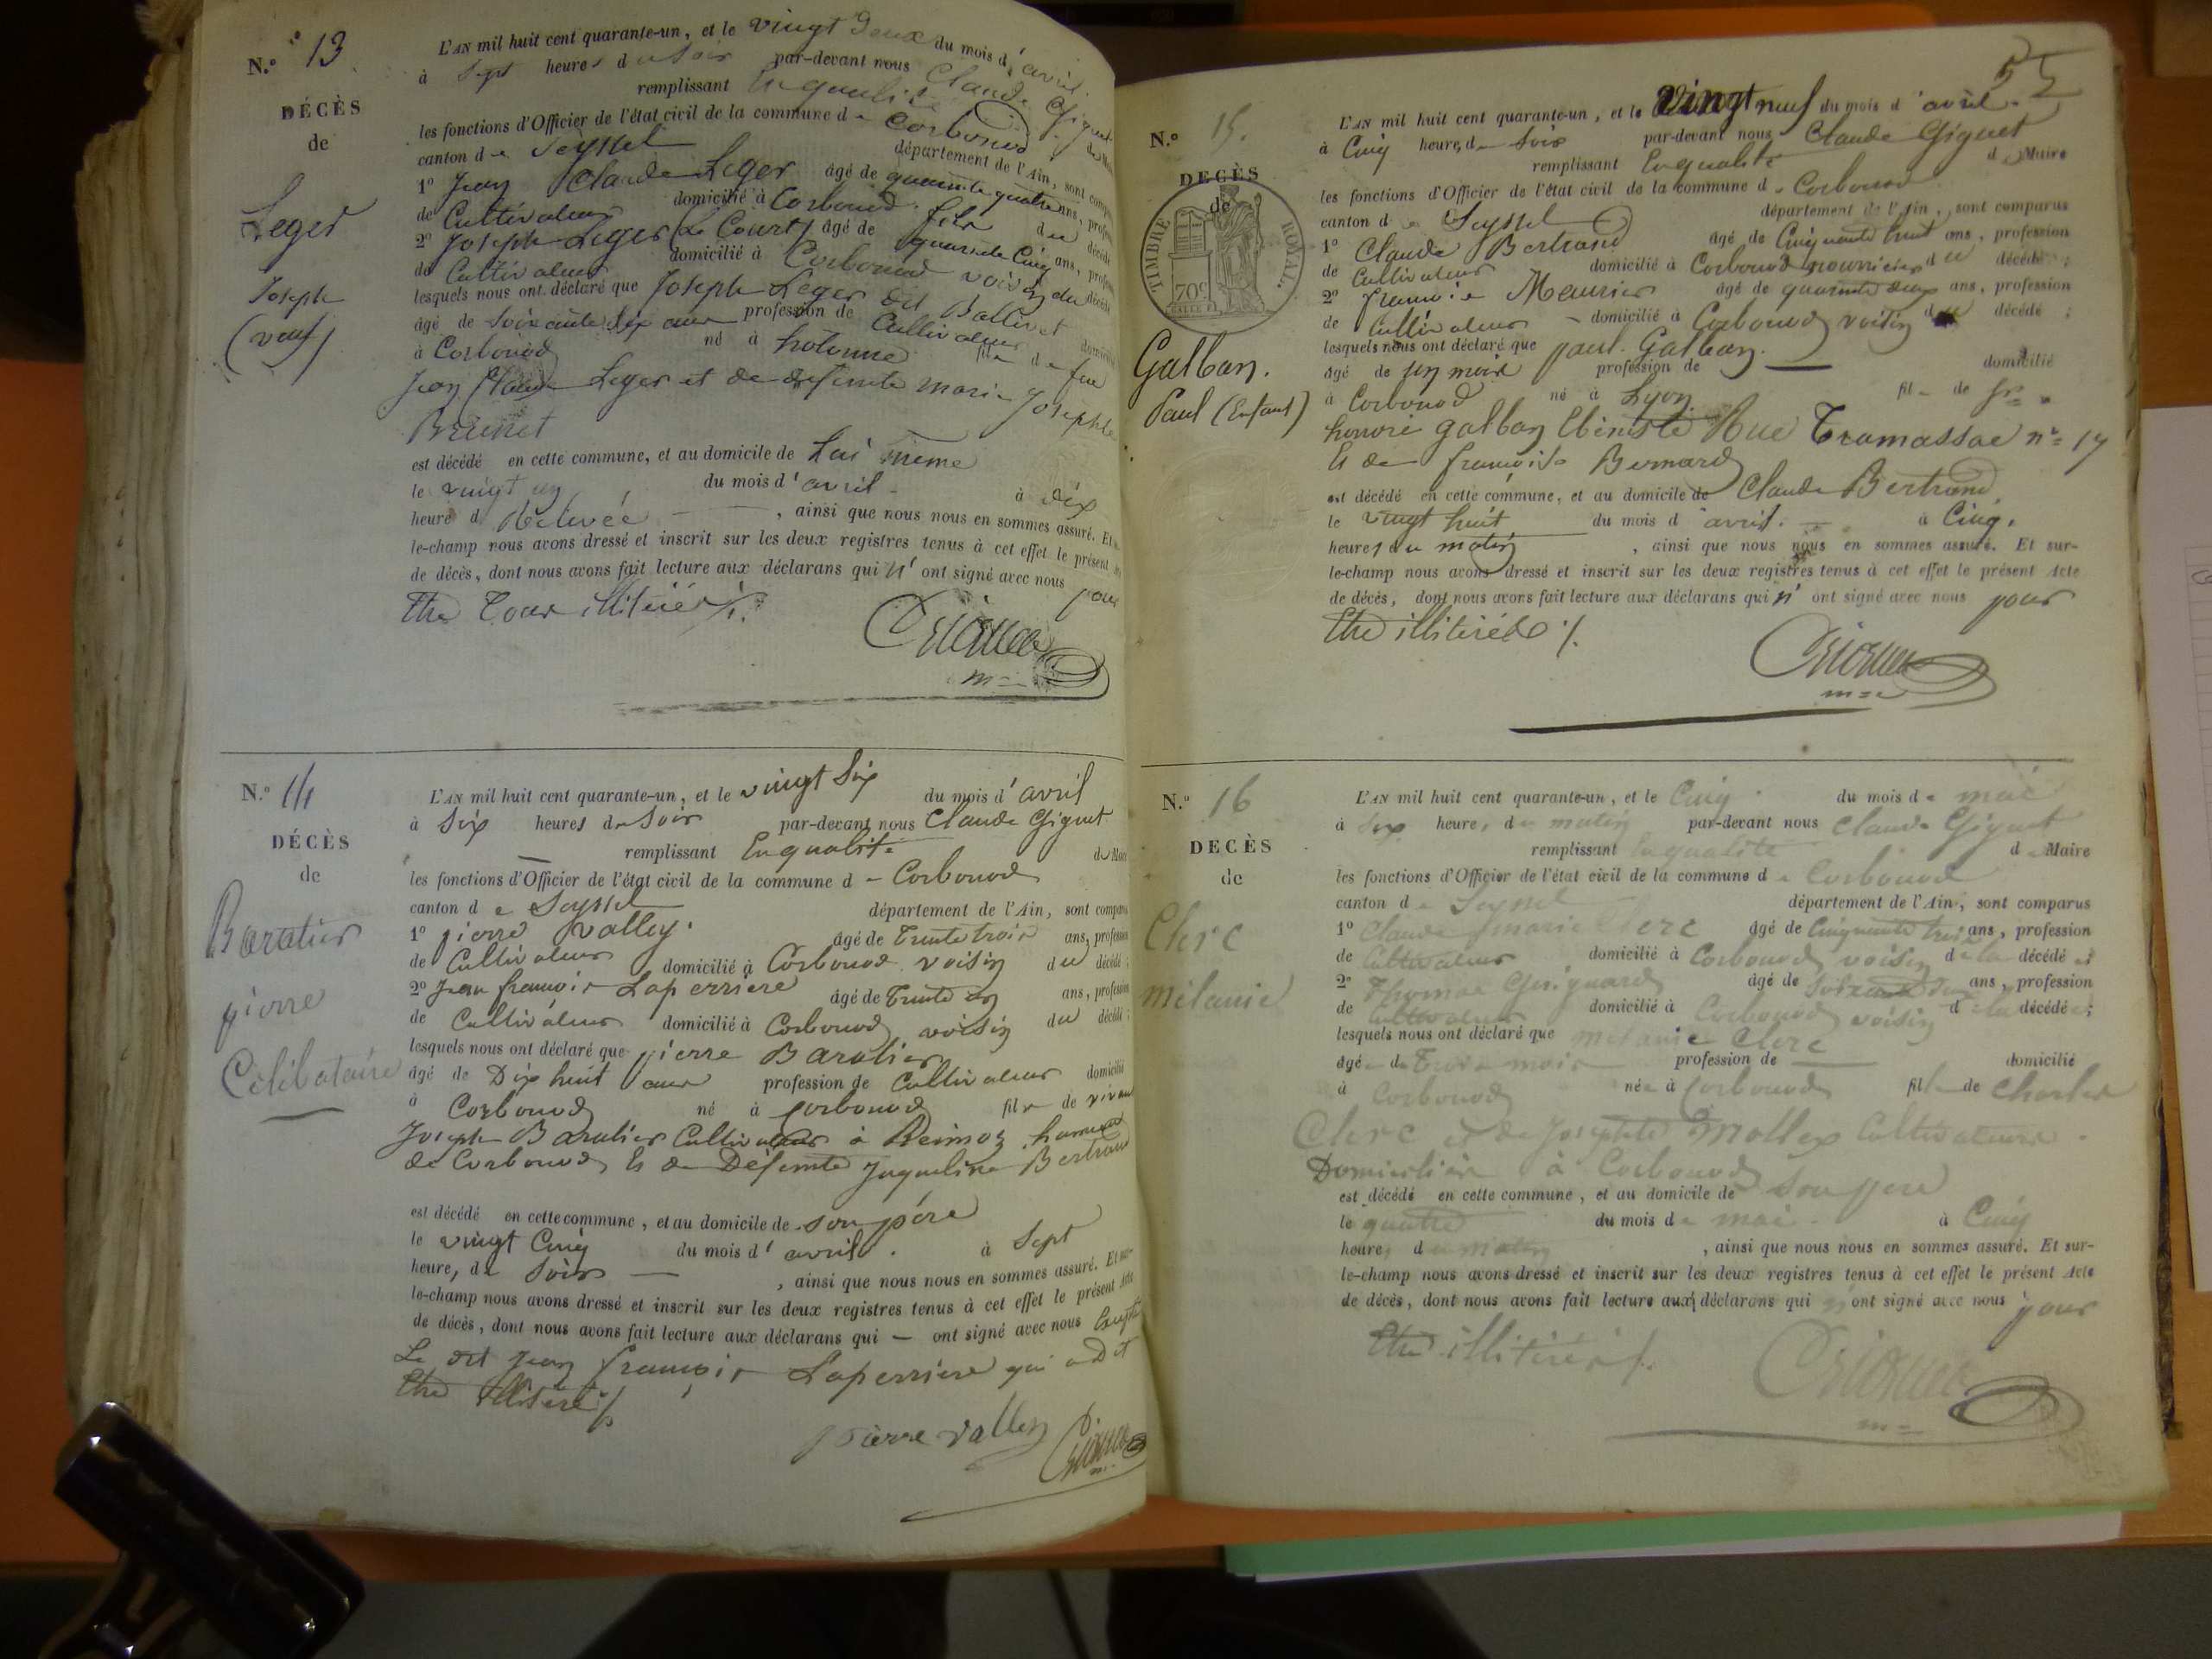 N.º 13
DÉCÈS
de
Leger
Joseph
(veuf)
L'AN mil huit cent quarante-un, et le vingt Deux du mois d'avril.
à Sept heures du Soir par-devant nous Claude Giguet
remplissant En qualité de Maire
les fonctions d'Officier de l'état civil de la commune de Corbonod
canton de Seyssel département de l'Ain, sont
1º Jean Claude Leger âgé de quarante quatre ans,
de Cultivateur domicilié à Corbonod fils du décédé
2º Joseph Leger (Le Court) âgé de quarante Cinq ans,
de Cultivateur domicilié à Corbonod voisin du décédé
lesquels nous ont déclaré que Joseph Leger dit Ballivet
âgé de Soixante dix ans profession de Cultivateur
à Corbonod né à hotonne fils de feu
Jean Claude Leger et de defunte marie Josephte
Brunet
est décédé en cette commune, et au domicile de Lui même
le vingt un du mois d'avril à dix
heure d Relevée, ainsi que nous nous en sommes assuré. Et
le-champ nous avons dressé et inscrit sur les deux registres tenus à cet effet le présent
de décès, dont nous avons fait lecture aux déclarans qui n'ont signé avec nous pour
Etre Tous illiterés ./.
m=
N.º 14
DÉCÈS
de
Baratier
pierre
Célibataire
L'AN mil huit cent quarante-un, et le vingt Six du mois d'avril
à Six heures du Soir par-devant nous Claude Giguet
remplissant En qualité du Maire
les fonctions d'Officier de l'état civil de la commune de Corbonod
canton de Seyssel département de l'Ain, sont
1º pierre Valley. âgé de Trente trois ans,
de Cultivateur domicilié à Corbonod voisin du décédé;
2º Jean françois Laperriere âgé de Trente un ans,
de Cultivateur domicilié à Corbonod voisin du décédé;
lesquels nous ont déclaré que pierre Baratier
âgé de Dix huit ans profession de Cultivateur domicilié
à Corbonod né à Corbonod fils de vivant
Joseph Baratier Cultivateur à Reimoz hameau
de Corbonod Et de Defunte Jaqueline Bertrand
est décédé en cette commune, et au domicile de son père
le vingt Cinq du mois d'avril. à Sept
heure, du Soir, ainsi que nous nous en sommes assuré. Et
le-champ nous avons dressé et inscrit sur les deux registres tenus à cet effet le présent Acte
de décès, dont nous avons fait lecture aux déclarans qui — ont signé avec nous Excepté
Le dit Jean françois Laperriere qui a Dit
Etre illiteré ./.
pierre valley
m=
55
N.º 15.
DECÈS
de
TIMBRE ROYAL.
70 c
Galban.
Paul (Enfant)
L'AN mil huit cent quarante-un, et le vingt neuf du mois d'avril.
à Cinq heure, du Soir par-devant nous Claude Giguet
remplissant En qualité de Maire
les fonctions d'Officier de l'état civil de la commune de Corbonod
canton de Seyssel département de l'Ain, sont comparus
1º Claude Bertrand âgé de Cinquante huit ans, profession
de Cultivateur domicilié à Corbonod nourricier du décédé;
2º françois Meunier âgé de quarante deux ans, profession
de Cultivateur domicilié à Corbonod voisin du décédé;
lesquels nous ont déclaré que paul Galban.
âgé de un mois profession de — domicilié
à Corbonod né à Lyon fil de
honoré galban Ebeniste Rue Tramassac nº= 17
Et de françoise Bernard
est décédé en cette commune, et au domicile de Claude Bertrand,
le vingt huit du mois d'avril. à Cinq.
heures du matin, ainsi que nous nous en sommes assuré. Et sur-
le-champ nous avons dressé et inscrit sur les deux registres tenus à cet effet le présent Acte
de décès, dont nous avons fait lecture aux déclarans qui n'ont signé avec nous pour
Etre illiterés ./.
N.º 16
DECÈS
de
Clerc
mélanie
L'AN mil huit cent quarante-un, et le Cinq du mois de mai
à Six heure, du matin par-devant nous Claude Giguet
remplissant En qualité de Maire
les fonctions d'Officier de l'état civil de la commune de Corbonod
canton de Seyssel département de l'Ain, sont comparus
1º Claude marie Clerc âgé de Cinquante trois ans, profession
de Cultivateur domicilié à Corbonod voisin de la décédée
2º Thomas Guignard âgé de ans, profession
de Cultivateur domicilié à Corbonod voisin de la décédée;
lesquels nous ont déclaré que mélanie Clerc
âgé de Trois mois profession de — domicilié
à Corbonod née à Corbonod fille de Charles
Clerc et de Josephte Mollex Cultivateurs.
Domiciliés à Corbonod
est décédé en cette commune, et au domicile de Son pere
le quatre du mois de mai. à Cinq
heure, du matin, ainsi que nous nous en sommes assuré. Et sur-
le-champ nous avons dressé et inscrit sur les deux registres tenus à cet effet le présent Acte
de décès, dont nous avons fait lecture aux déclarans qui n'ont signé avec nous pour
Etre illiterés ./.
m=